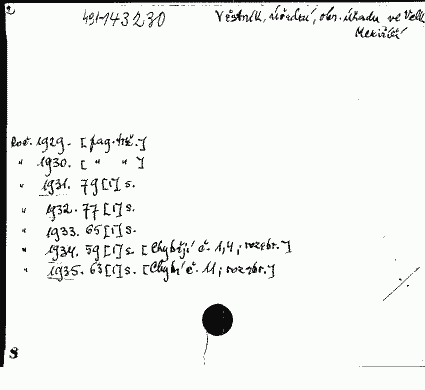 491-143230
Věstník, úřední, okr. úřadu ve Velk.
Meziříčí
Roč. 1929. [pag. též.]
" 1930. [ " " ]
" 1931. 79 [1] s.
" 1932. 77 [1] s.
" 1933. 65 [1] s.
" 1934. 59 [1] s. [Chybějí č. 1, 4; rozebr.]
" 1935. 63 [1] s. [Chybí č. 11; rozebr.]